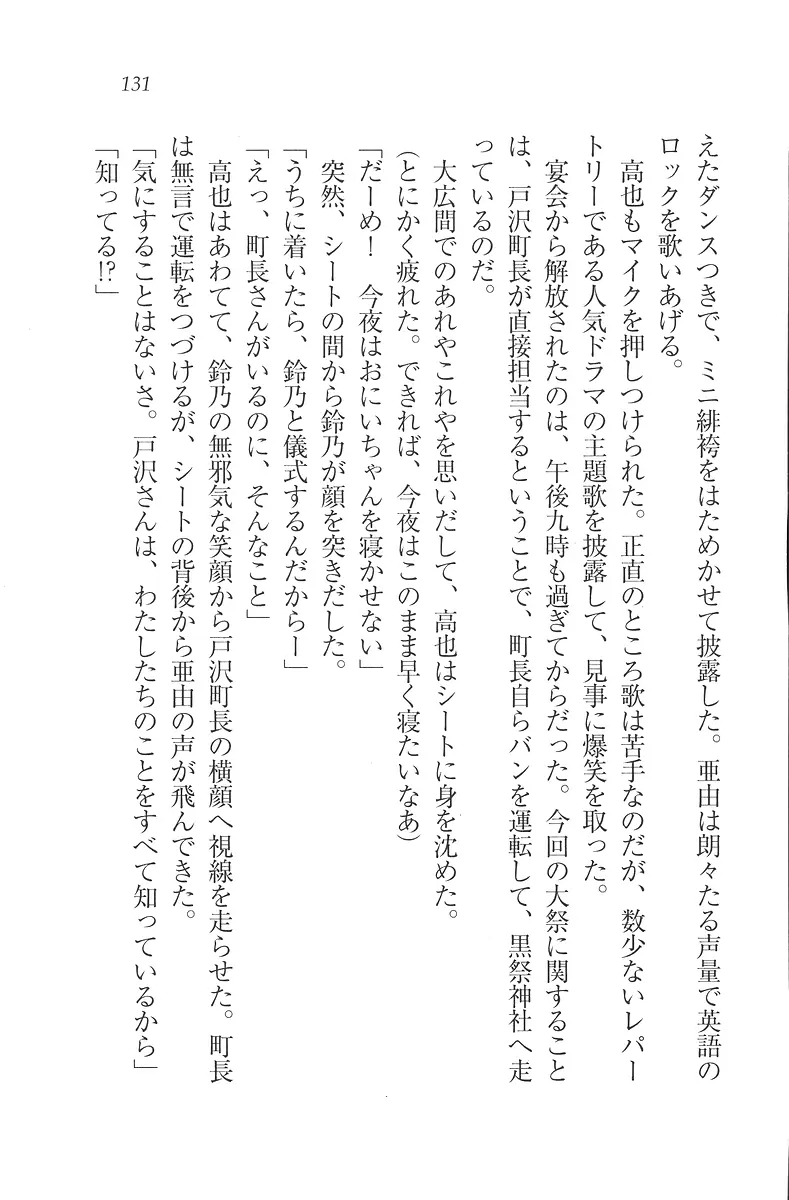 131
えたダンスつきで、ミニ緋袴をはためかせて披露した。亜由は朗々たる声量で英語の
ロックを歌いあげる。
　高也もマイクを押しつけられた。正直のところ歌は苦手なのだが、数少ないレパー
トリーである人気ドラマの主題歌を披露して、見事に爆笑を取った。
　宴会から解放されたのは、午後九時も過ぎてからだった。今回の大祭に関すること
は、戸沢町長が直接担当するということで、町長自らバンを運転して、黒祭神社へ走
っているのだ。
　大広間でのあれやこれやを思いだして、高也はシートに身を沈めた。
（とにかく疲れた。できれば、今夜はこのまま早く寝たいなあ）
「だーめ！　今夜はおにいちゃんを寝かせない」
　突然、シートの間から鈴乃が顔を突きだした。
「うちに着いたら、鈴乃と儀式するんだからー」
「えっ、町長さんがいるのに、そんなこと」
　高也はあわてて、鈴乃の無邪気な笑顔から戸沢町長の横顔へ視線を走らせた。町長
は無言で運転をつづけるが、シートの背後から亜由の声が飛んできた。
「気にすることはないさ。戸沢さんは、わたしたちのことをすべて知っているから」
「知ってる!?」